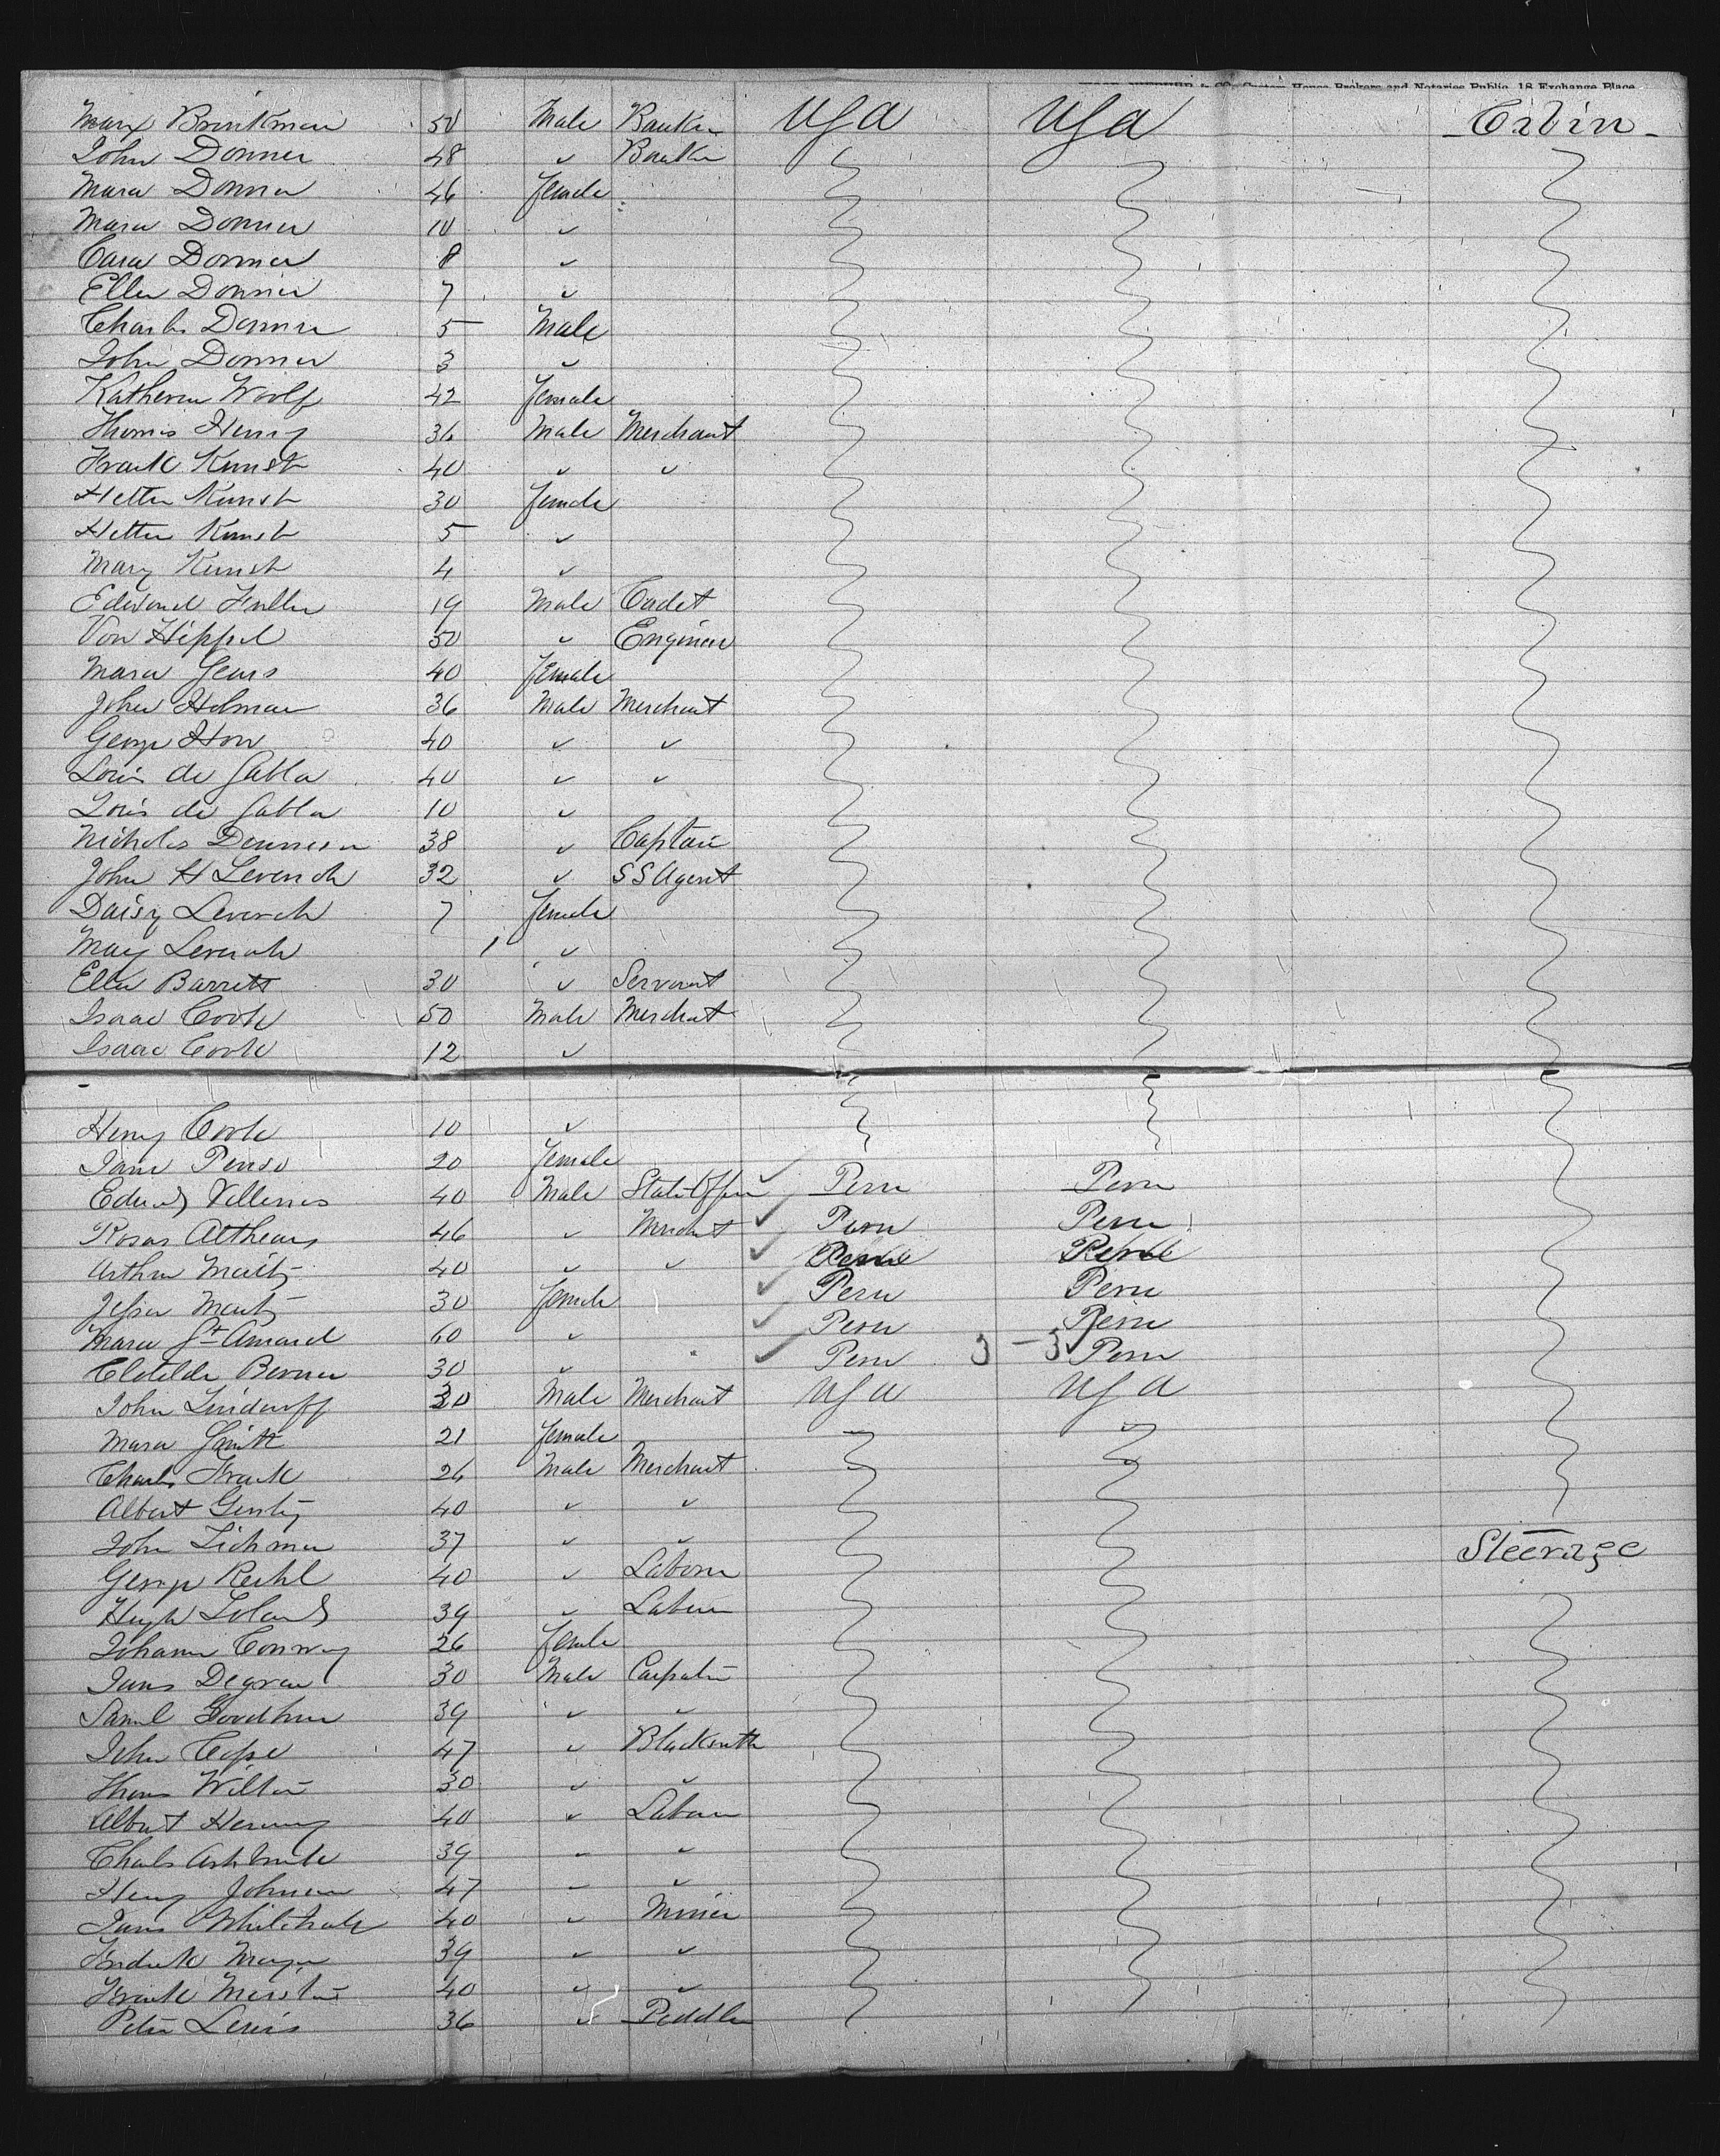 Custom House Brokers and Notaries Public, 18 Exchange Place
Marx Brinkman 50 Male Banker USA USA Cabin
John Donner 48 " Banker
Mara Donner 46 female
Mara Donner 10 "
Cara Donner 8 "
Ellen Donner 7 "
Charles Donner 5 Male
John Donner 3 "
Katheren Woolf 42 female
Thomas Henry 36 Male Merchant
Frank Kunst 40 " "
Hetten Kunst 30 female
Hetten Kunst 5 "
Mary Kunst 4 "
Edward Fuller 19 Male Cadet
Von Hippel 50 " Engineer
Mara Gears 40 female
John Holman 36 Male Merchant
George How 40 " "
Louis de Sabla 40 " "
Louis de Sabla 10 "
Nicholas Dennison 38 " Captain
John H Leverich 32 " SS Agent
Daisy Leverich 7 female
May Leverich 1 "
Ellen Barrett 30 " Servant
Isaac Cook 50 Male Merchant
Isaac Cook 12 "
Henry Cook 10 "
Jane Penso 20 female
Edward 40 Male State Officer Peru Peru
Rosas 46 " Merchant Peru Peru
Arthur 40 " " Peru Peru
30 female Peru Peru
Mara St Amand 60 " Peru Peru
Clotilde 30 " Peru 3 - 3 Peru
John Lindenoff 30 Male Merchant USA USA
Mara Smith 21 female
Charles Frank 26 Male Merchant
Albert 40 " "
John 37 " "
George Reihl 40 " Laborer Steerage
Hugh Toland 39 " Laborer
Johanna Conway 26 female
James Degraw 30 Male Carpenter
Saml Goodhue 39 " "
John 47 " Blacksmith
Thomas Wilton 30 " "
Albert 40 " Laborer
Charles 39 " "
Henry Johnson 47 " "
James 40 " Miner
Fredrick Mayer 39 " "
Frank 40 " "
Peter Lewis 36 " Peddler